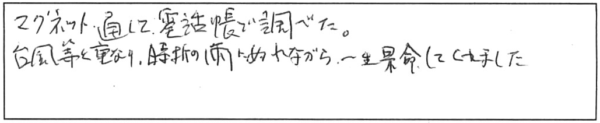 マグネット通して電話帳で調べた。
台風等と重なり、時折の雨にぬれながら、一生果命してくれました